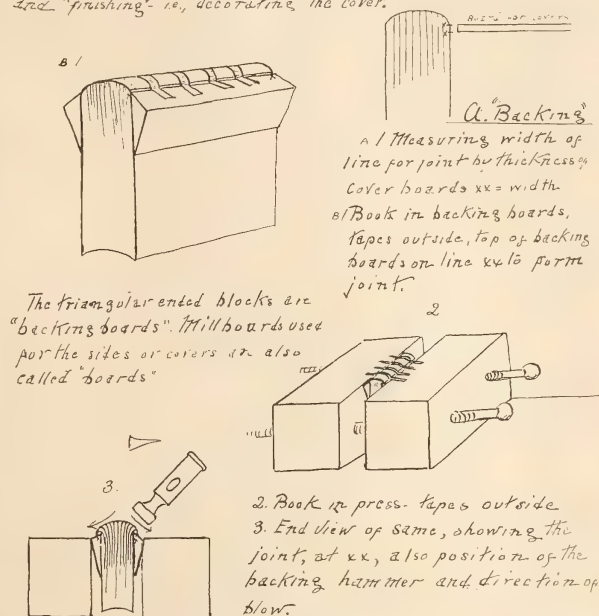 and "finishing"- i.e., decorating the cover.
B 1
A. "Backing"
A 1 Measuring width of
line for joint by thickness of
Cover boards xx = width
B1 Book in backing boards,
tapes outside, top of backing
boards on line xx to form
joint.
The triangular ended blocks are
"backing boards". Millboards used
for the sides or covers are also
called "boards"
2
3.
2. Book in press- tapes outside
3. End view of same, showing the
joint, at xx, also position of the
backing hammer and direction of
blow.